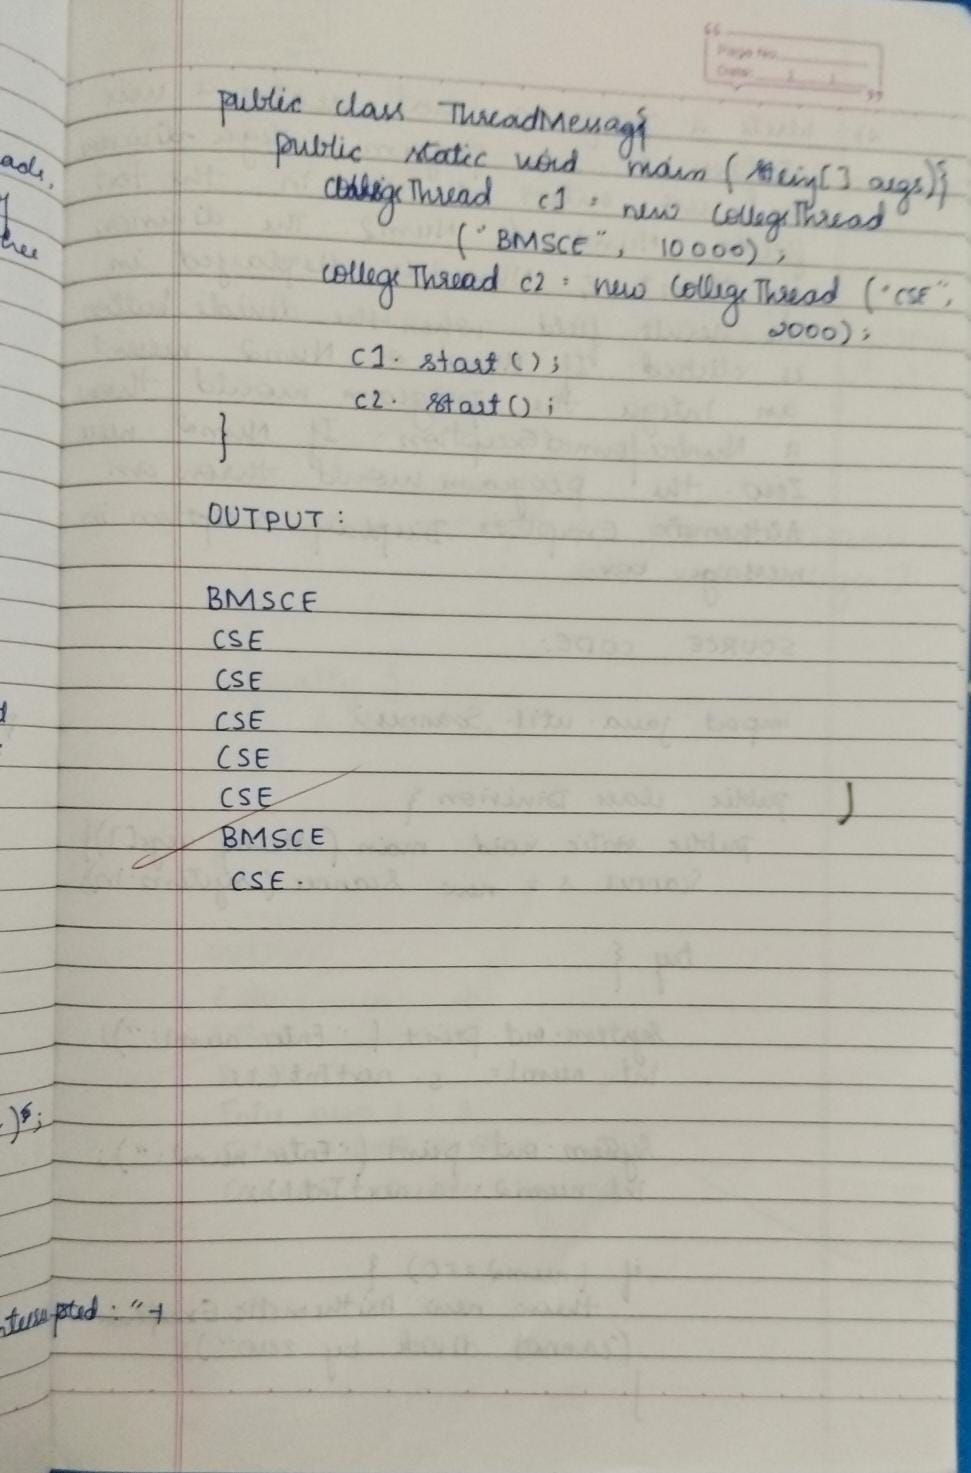 Page No.
Date:
public class ThreadMessage{
public static void main (String[] args){
CollegeThread c1 = new CollegeThread
("BMSCE", 10000);
CollegeThread c2 = new CollegeThread ("CSE",
2000);
c1. start();
c2. start();
}
OUTPUT:
BMSCE
CSE
CSE
CSE
CSE
CSE
BMSCE
CSE.
nterrupted: "+